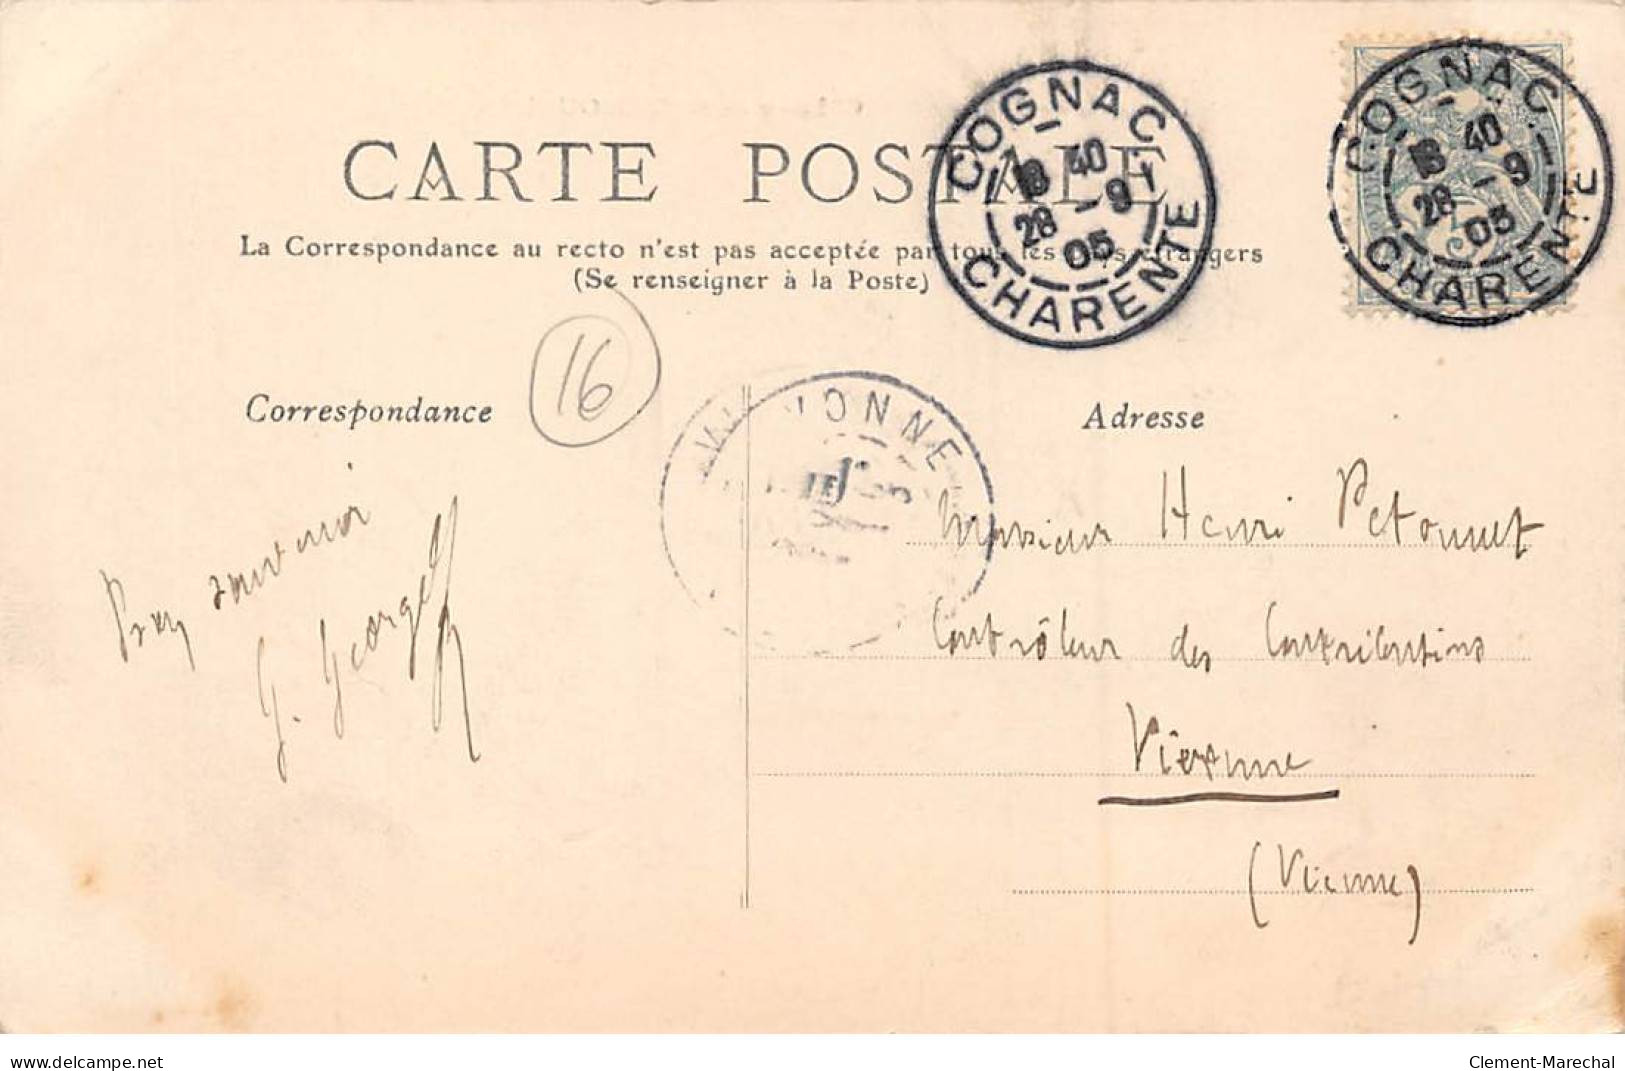 CARTE POSTALE
La Correspondance au recto n'est pas acceptée par tous les pays étrangers
(Se renseigner à la Poste)
COGNAC
18 40
28 - 9
05
CHARENTE
COGNAC
18 40
28 - 9
05
CHARENTE
16
Correspondance
Adresse
Bon souvenir
G. Georges
Monsieur Henri
Contrôleur des Contributions
Vivonne
(Vienne)
www.delcampe.net
Clement-Marechal